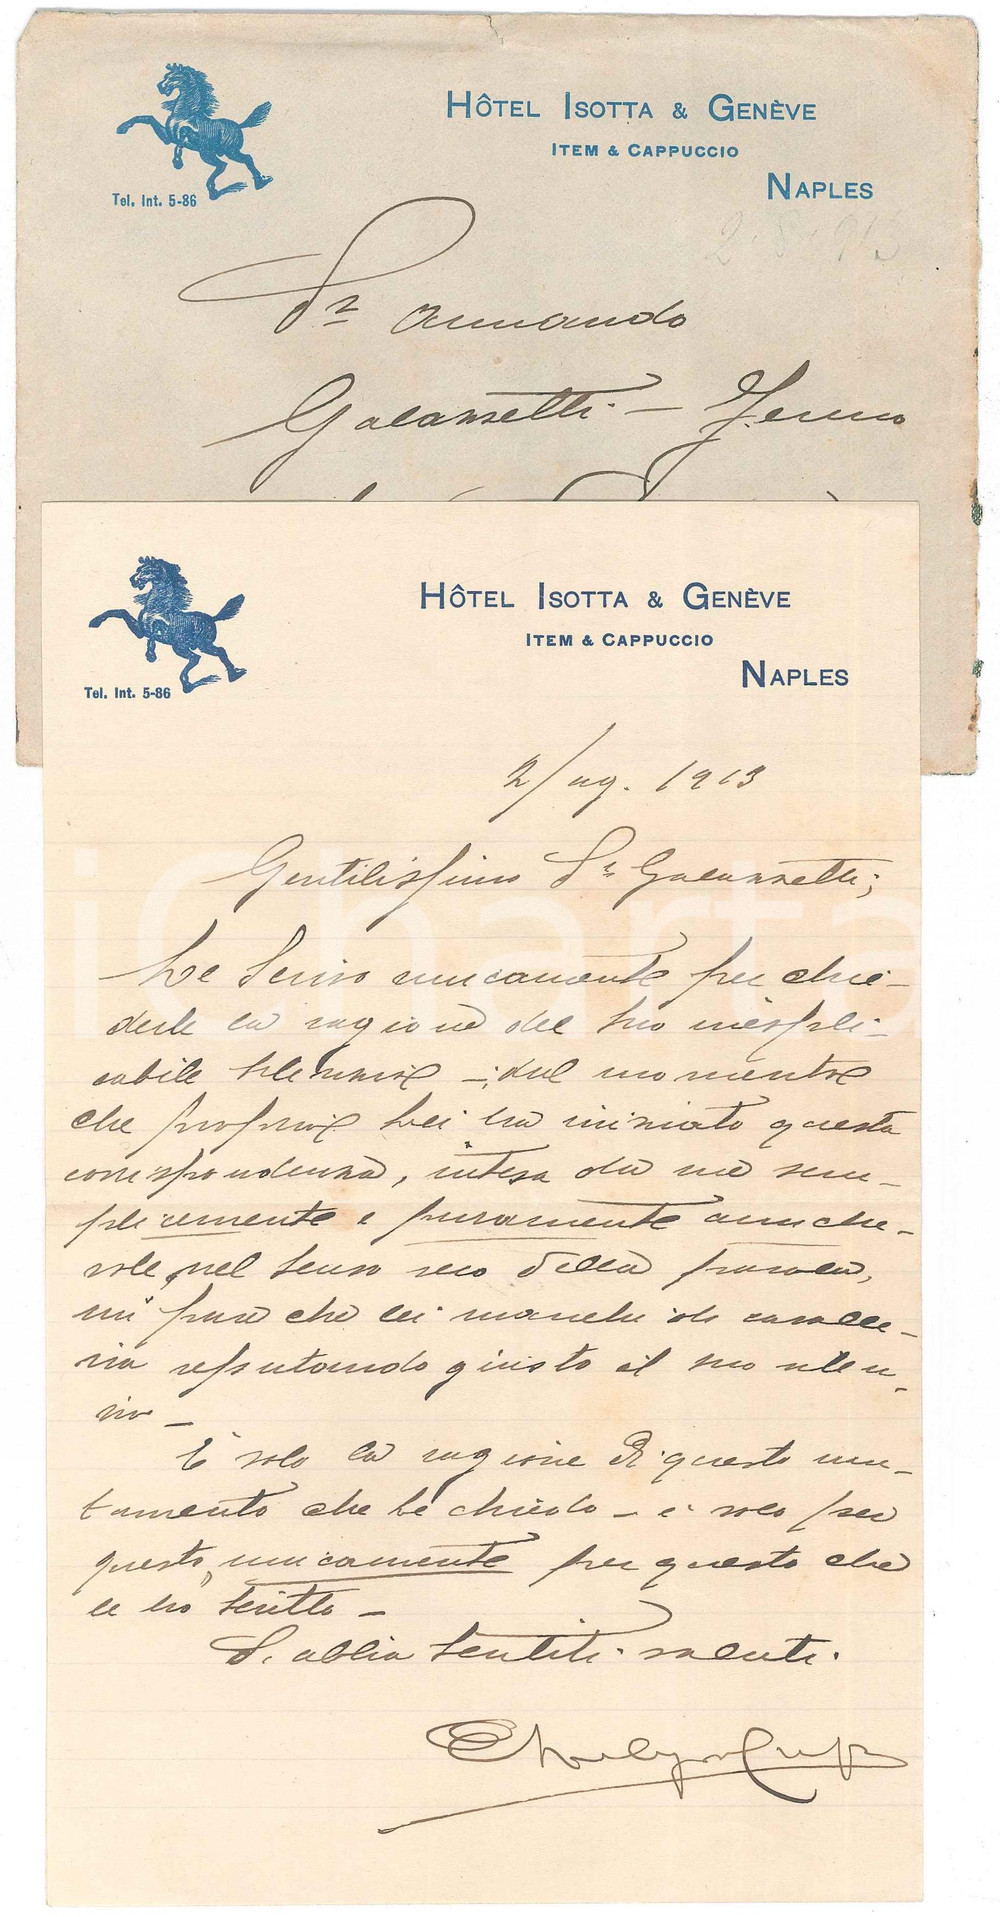 HÔTEL ISOTTA & GENÈVE
ITEM & CAPPUCCIO
NAPLES
Tel. Int. 5-86
2.8.913
Sr Armando
Galanzetti - Fermo
HÔTEL ISOTTA & GENÈVE
ITEM & CAPPUCCIO
NAPLES
Tel. Int. 5-86
2/ag. 1913
Gentilissimo Sr Galanzetti;
Le scrivo unicamente per chie-
derle la ragione del suo inespli-
cabile silenzio -; dal momento
che proprio Lei ha iniziato questa
corrispondenza, intesa da me sem-
plicemente e puramente amiche-
vole, nel senso vero della parola,
mi pare che lei manchi di cavalle-
ria reputando giusto il suo silen-
zio -
È solo la ragione di questo mu-
tamento che le chiedo - e solo per
questo, unicamente per questo che
le ho scritto -
S. abbia sentiti saluti.
iCharta